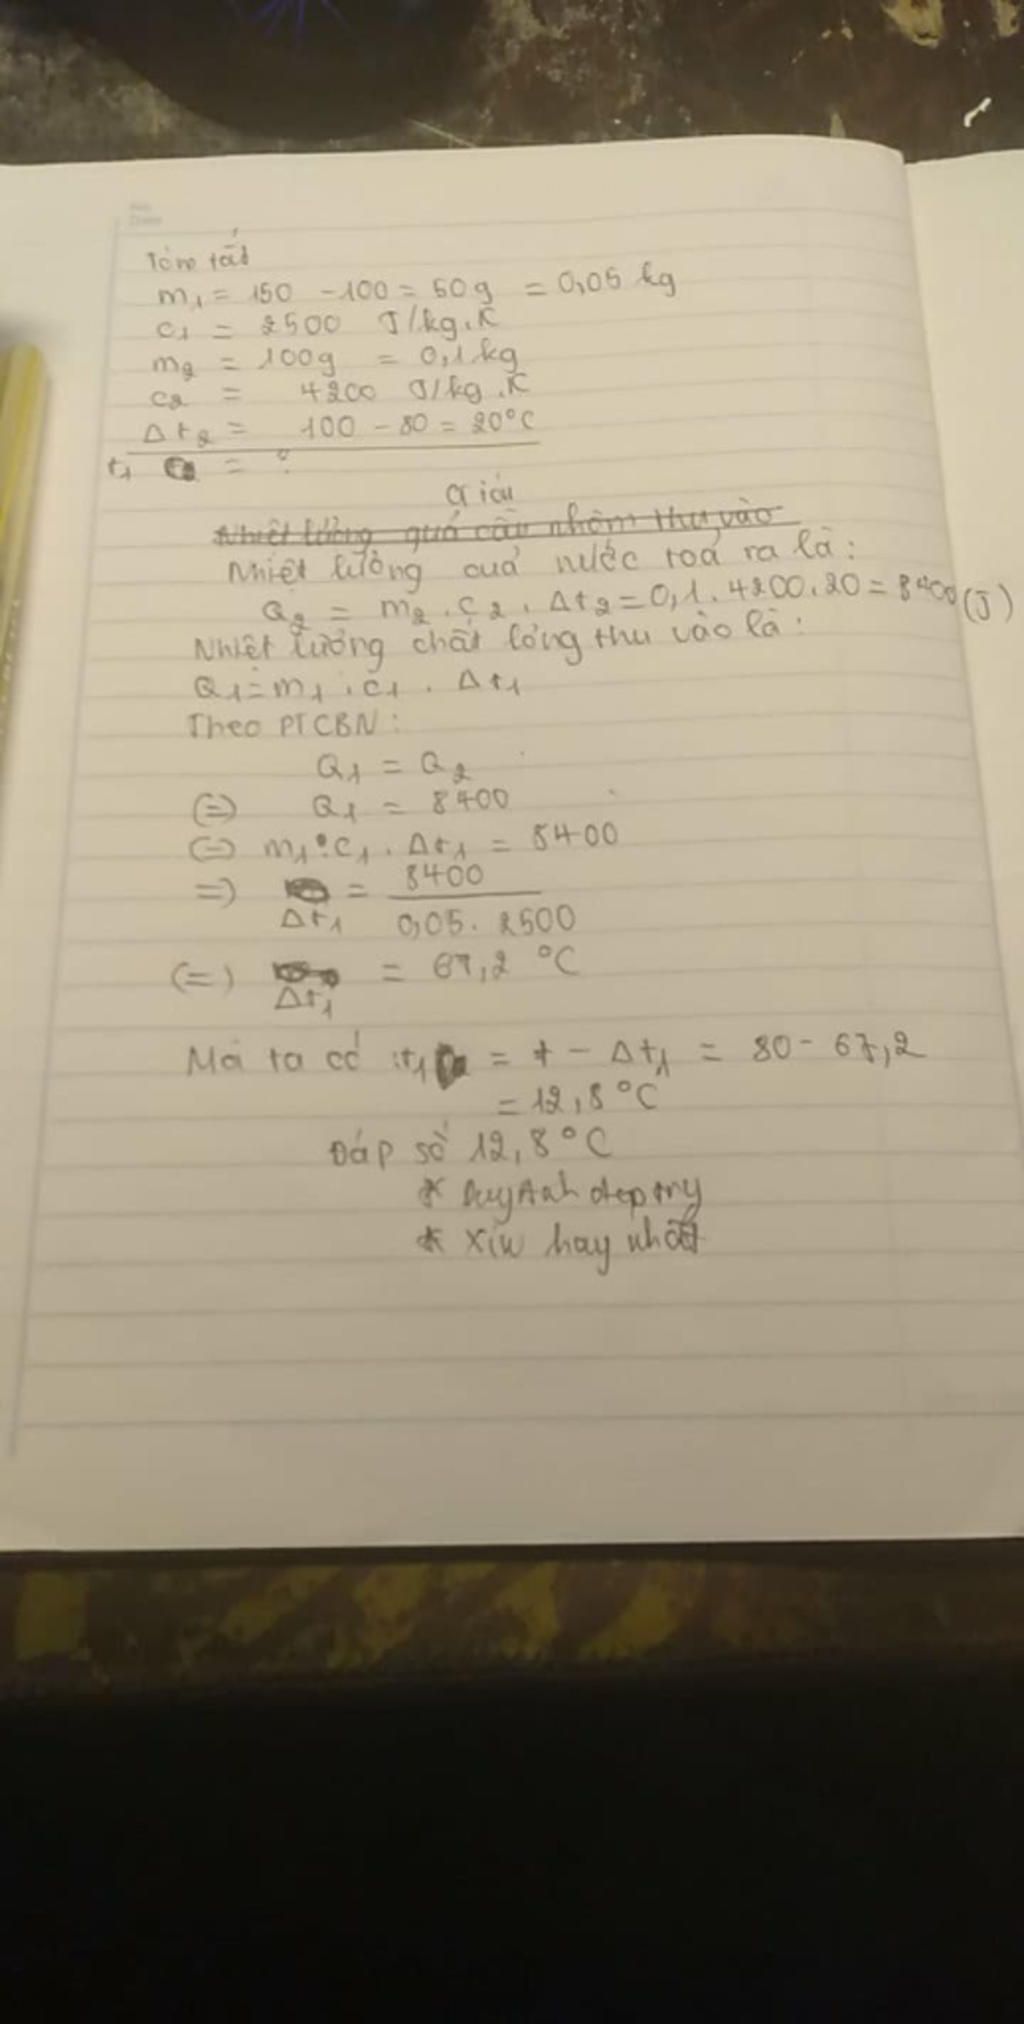 Tóm tắt
m₁ = 150 - 100 = 50g = 0,05 kg
c₁ = 2500 J/kg.K
m₂ = 100g = 0,1 kg
c₂ = 4200 J/kg.K
Δt₂ = 100 - 80 = 20°C
t₁ = ?
Giải
Nhiệt lượng quả cầu nhôm thu vào
Nhiệt lượng của nước toả ra là:
Q₂ = m₂ . c₂ . Δt₂ = 0,1 . 4200 . 20 = 8400 (J)
Nhiệt lượng chất lỏng thu vào là:
Q₁ = m₁ . c₁ . Δt₁
Theo PTCBN:
Q₁ = Q₂
(=) Q₁ = 8400
(=) m₁ . c₁ . Δt₁ = 8400
=) Δt₁ = 8400
0,05 . 2500
(=) Δt₁ = 67,2 °C
Mà ta có : t₁ = t - Δt₁ = 80 - 67,2
= 12,8 °C
Đáp số 12,8 °C
* DuyAnh
* Xỉu hay nhất